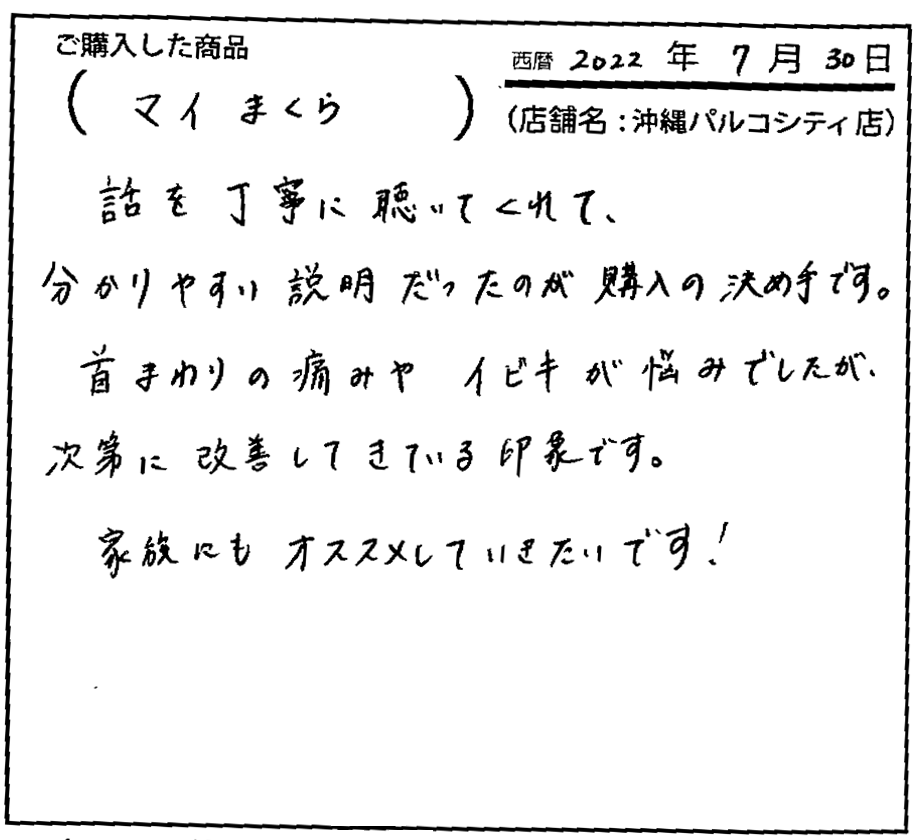 ご購入した商品
西暦 2022 年 7 月 30 日
( マイまくら )
(店舗名:沖縄パルコシティ店)
話を丁寧に聴いてくれて、
分かりやすい説明だったのが購入の決め手です。
首まわりの痛みや イビキが悩みでしたが、
次第に改善してきている印象です。
家族にもオススメしていきたいです!